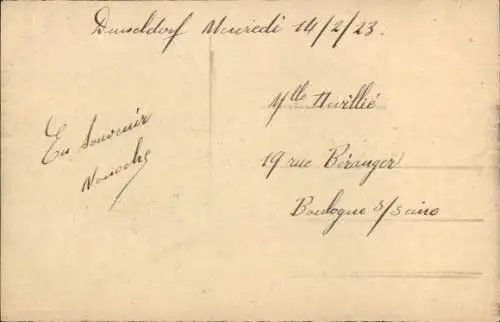 Dusseldorf Mercredi 14/2/23.
En Souvenir
Mlle
19 rue Béranger
Boulogne s/Seine